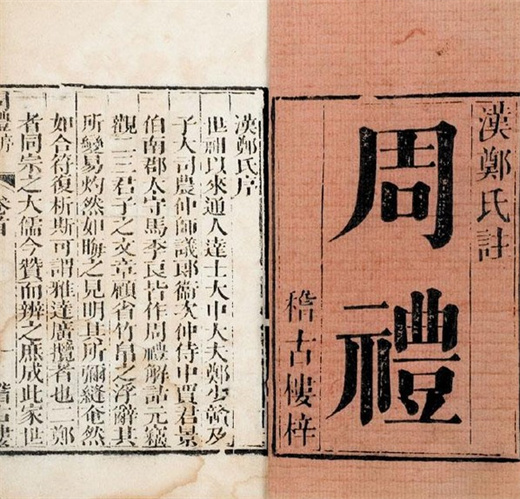 漢鄭氏註
周禮
稽古樓梓
漢鄭氏序
世祖以來通人達士大中大夫鄭少贛及
子大司農仲師議郎衛次仲侍中賈君景
伯南郡太守馬季長皆作周禮解詁元竊
觀二三君子之文章顧省竹帛之浮辭其
所變易灼然如晦之見明其所彌縫奄然
如合符復析斯可謂雅達廣攬者也二鄭
者同宗之大儒今贊而辨之庶成此家世
禮序 卷首 一 稽古樓